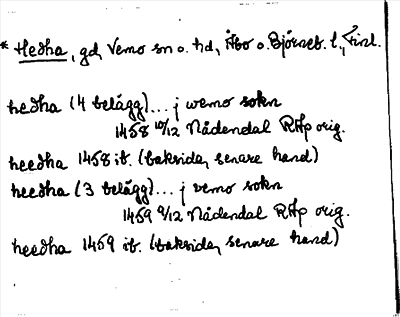 * Hedha, gd, Vemo sn o. hd, Åbo o. Björneb. l., Finl.
hedha (4 belägg)... j wemo sokn
1458 10/12 Nådendal RAp orig.
heedha 1458 ib. (baksida, senare hand)
heedha (3 belägg)... j vemo sokn
1459 9/12 Nådendal RAp orig.
heedha 1459 ib. (baksida, senare hand)